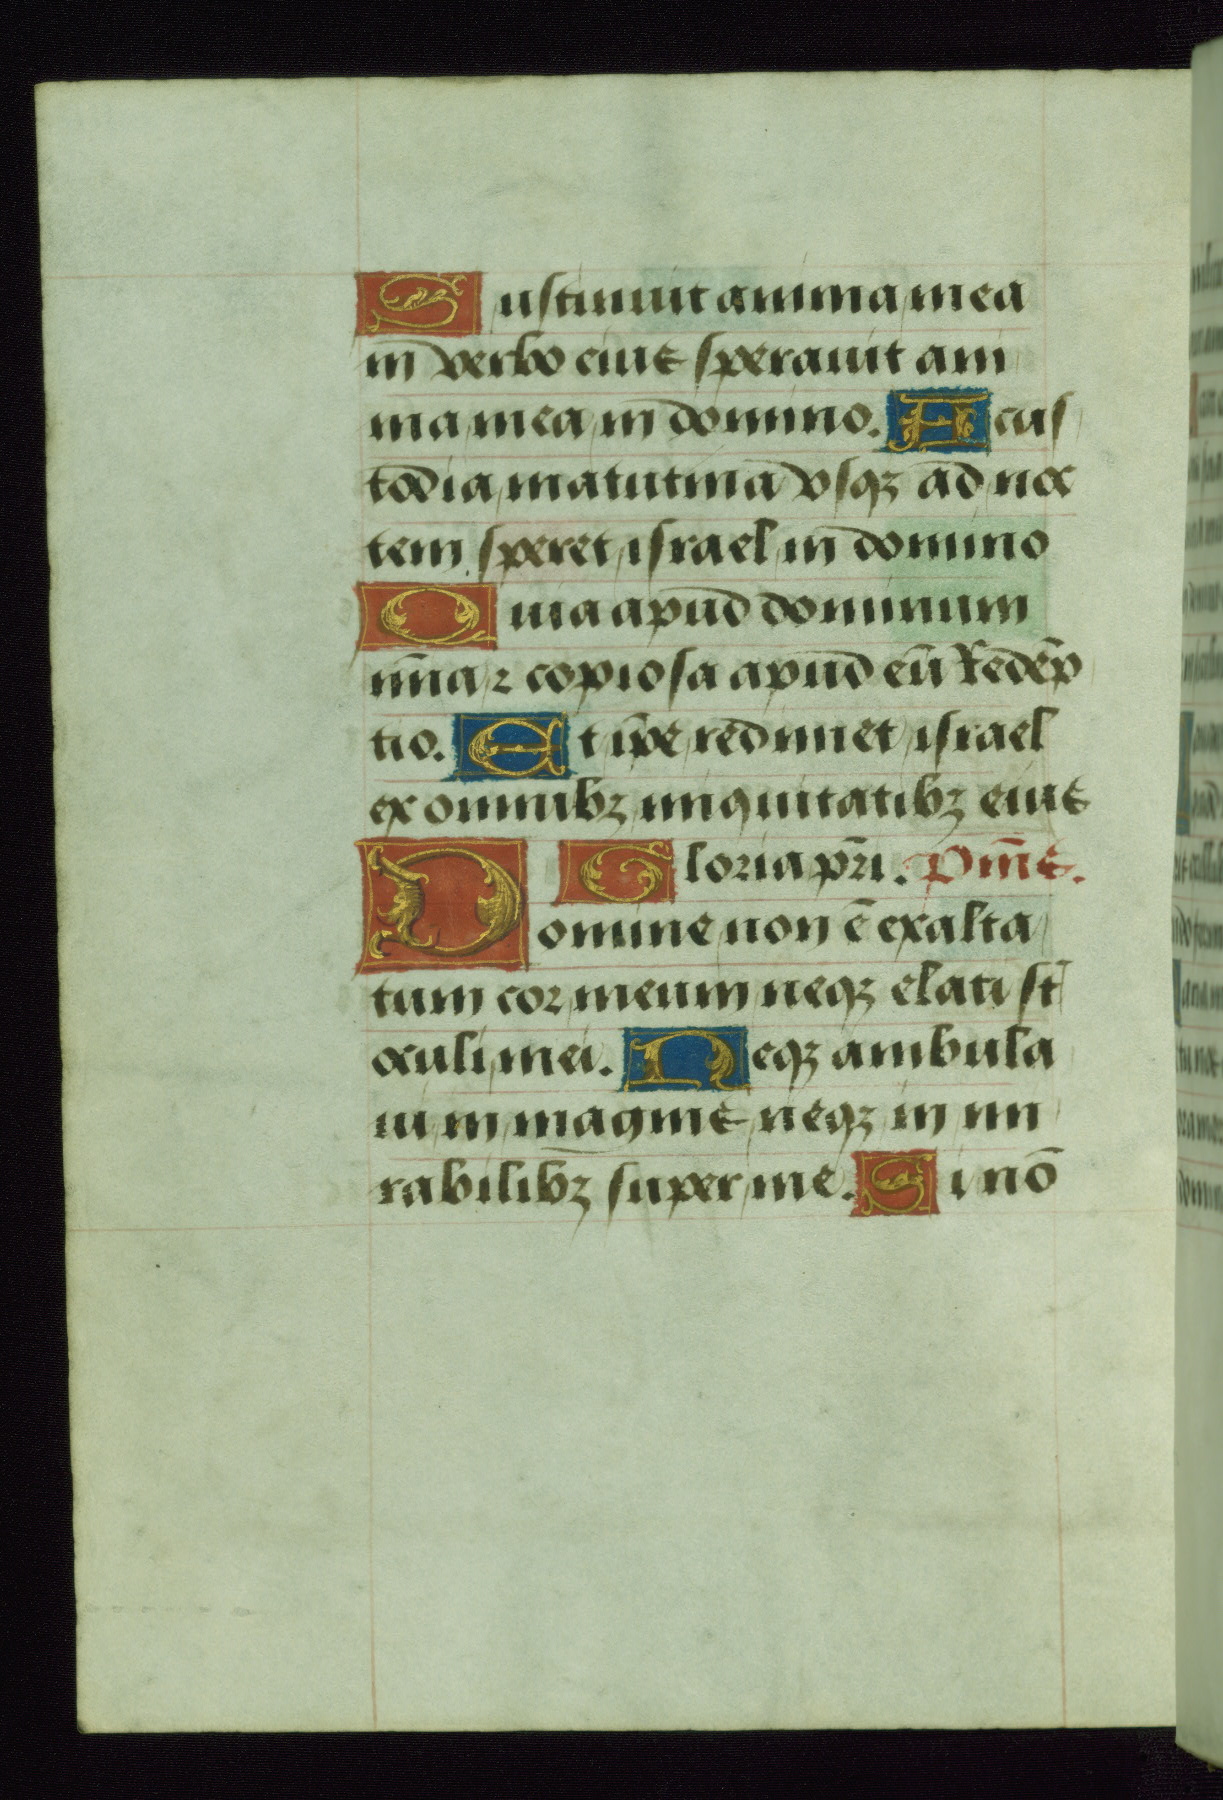 Sustinuit anima mea
in verbo eius speravit ani
ma mea in domino. A cus
todia matutina vsqꝫ ad noc
tem speret israel in domino
Quia apud dominum
mĩa ⁊ copiosa apud eũ Redẽp
tio. Et ip̃e redimet israel
ex omnibꝫ iniquitatibꝫ eius
Gloria pr̃i. Psm̃s.
Domine non ẽ exalta
tum cor meum neqꝫ elati st̃
oculi mei. Neqꝫ ambula
ui in magnis neqꝫ in mi
rabilibꝫ super me. Si nõ